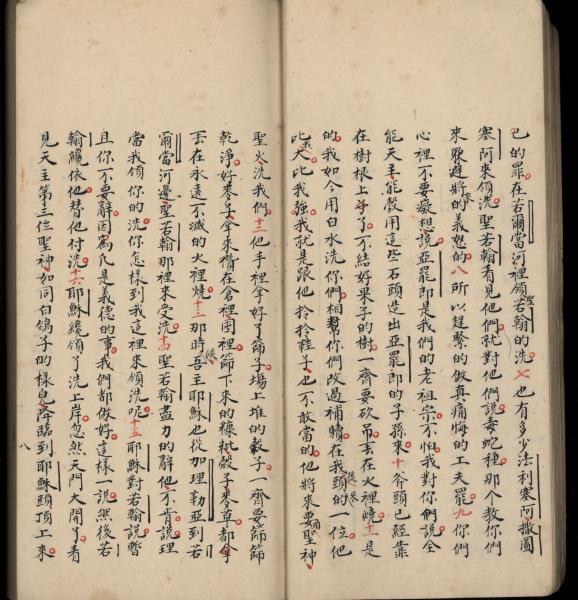 已的罪在若爾當河裡領聖若翰的洗七也有多少法利塞阿撒圖
塞阿來領洗聖若翰看見他們就對他們說毒蛇種那个教你們
來躲避將來的義怒的八所以趕緊的做真痛悔的工夫罷九你們
心裡不要癡想說亞罷郎是我們的老祖宗不怕我對你們說全
能天主能彀用這些石頭造出亞罷郎的子孫來十斧頭已經靠
在樹根上了不結好果子的樹一齊要砍吊丟在火裡燒十一是
的我如今用白水洗你們相幫你們改過補贖在我頭後來的一位他
比我大比我強我就是跟他拎拎鞋子也不敢當的他將來要用聖神
聖火洗我們十二他手裡拿好了篩子塲上堆的穀子一齊要篩篩
乾淨好來子拿來儹在倉裡囤裡篩下來的糠粃殼子麥草都拿
丟在永遠不滅的火裡燒十三那時候吾主耶穌也從加理勒亞到若
爾當河邊聖若翰那裡來受洗十四聖若翰盡力的辭他不肯說理
當我領你的洗你怎樣到我這裡來領洗呢十五耶穌對若翰說暫
且你不要辭因爲凡是義德的事我們都做好這樣一說然後若
翰纔依他替他付洗十六耶穌纔領了洗上岸忽然天門大開了看
見天主第三位聖神如同白鴿子的樣兒降臨到耶穌頭頂上來
八